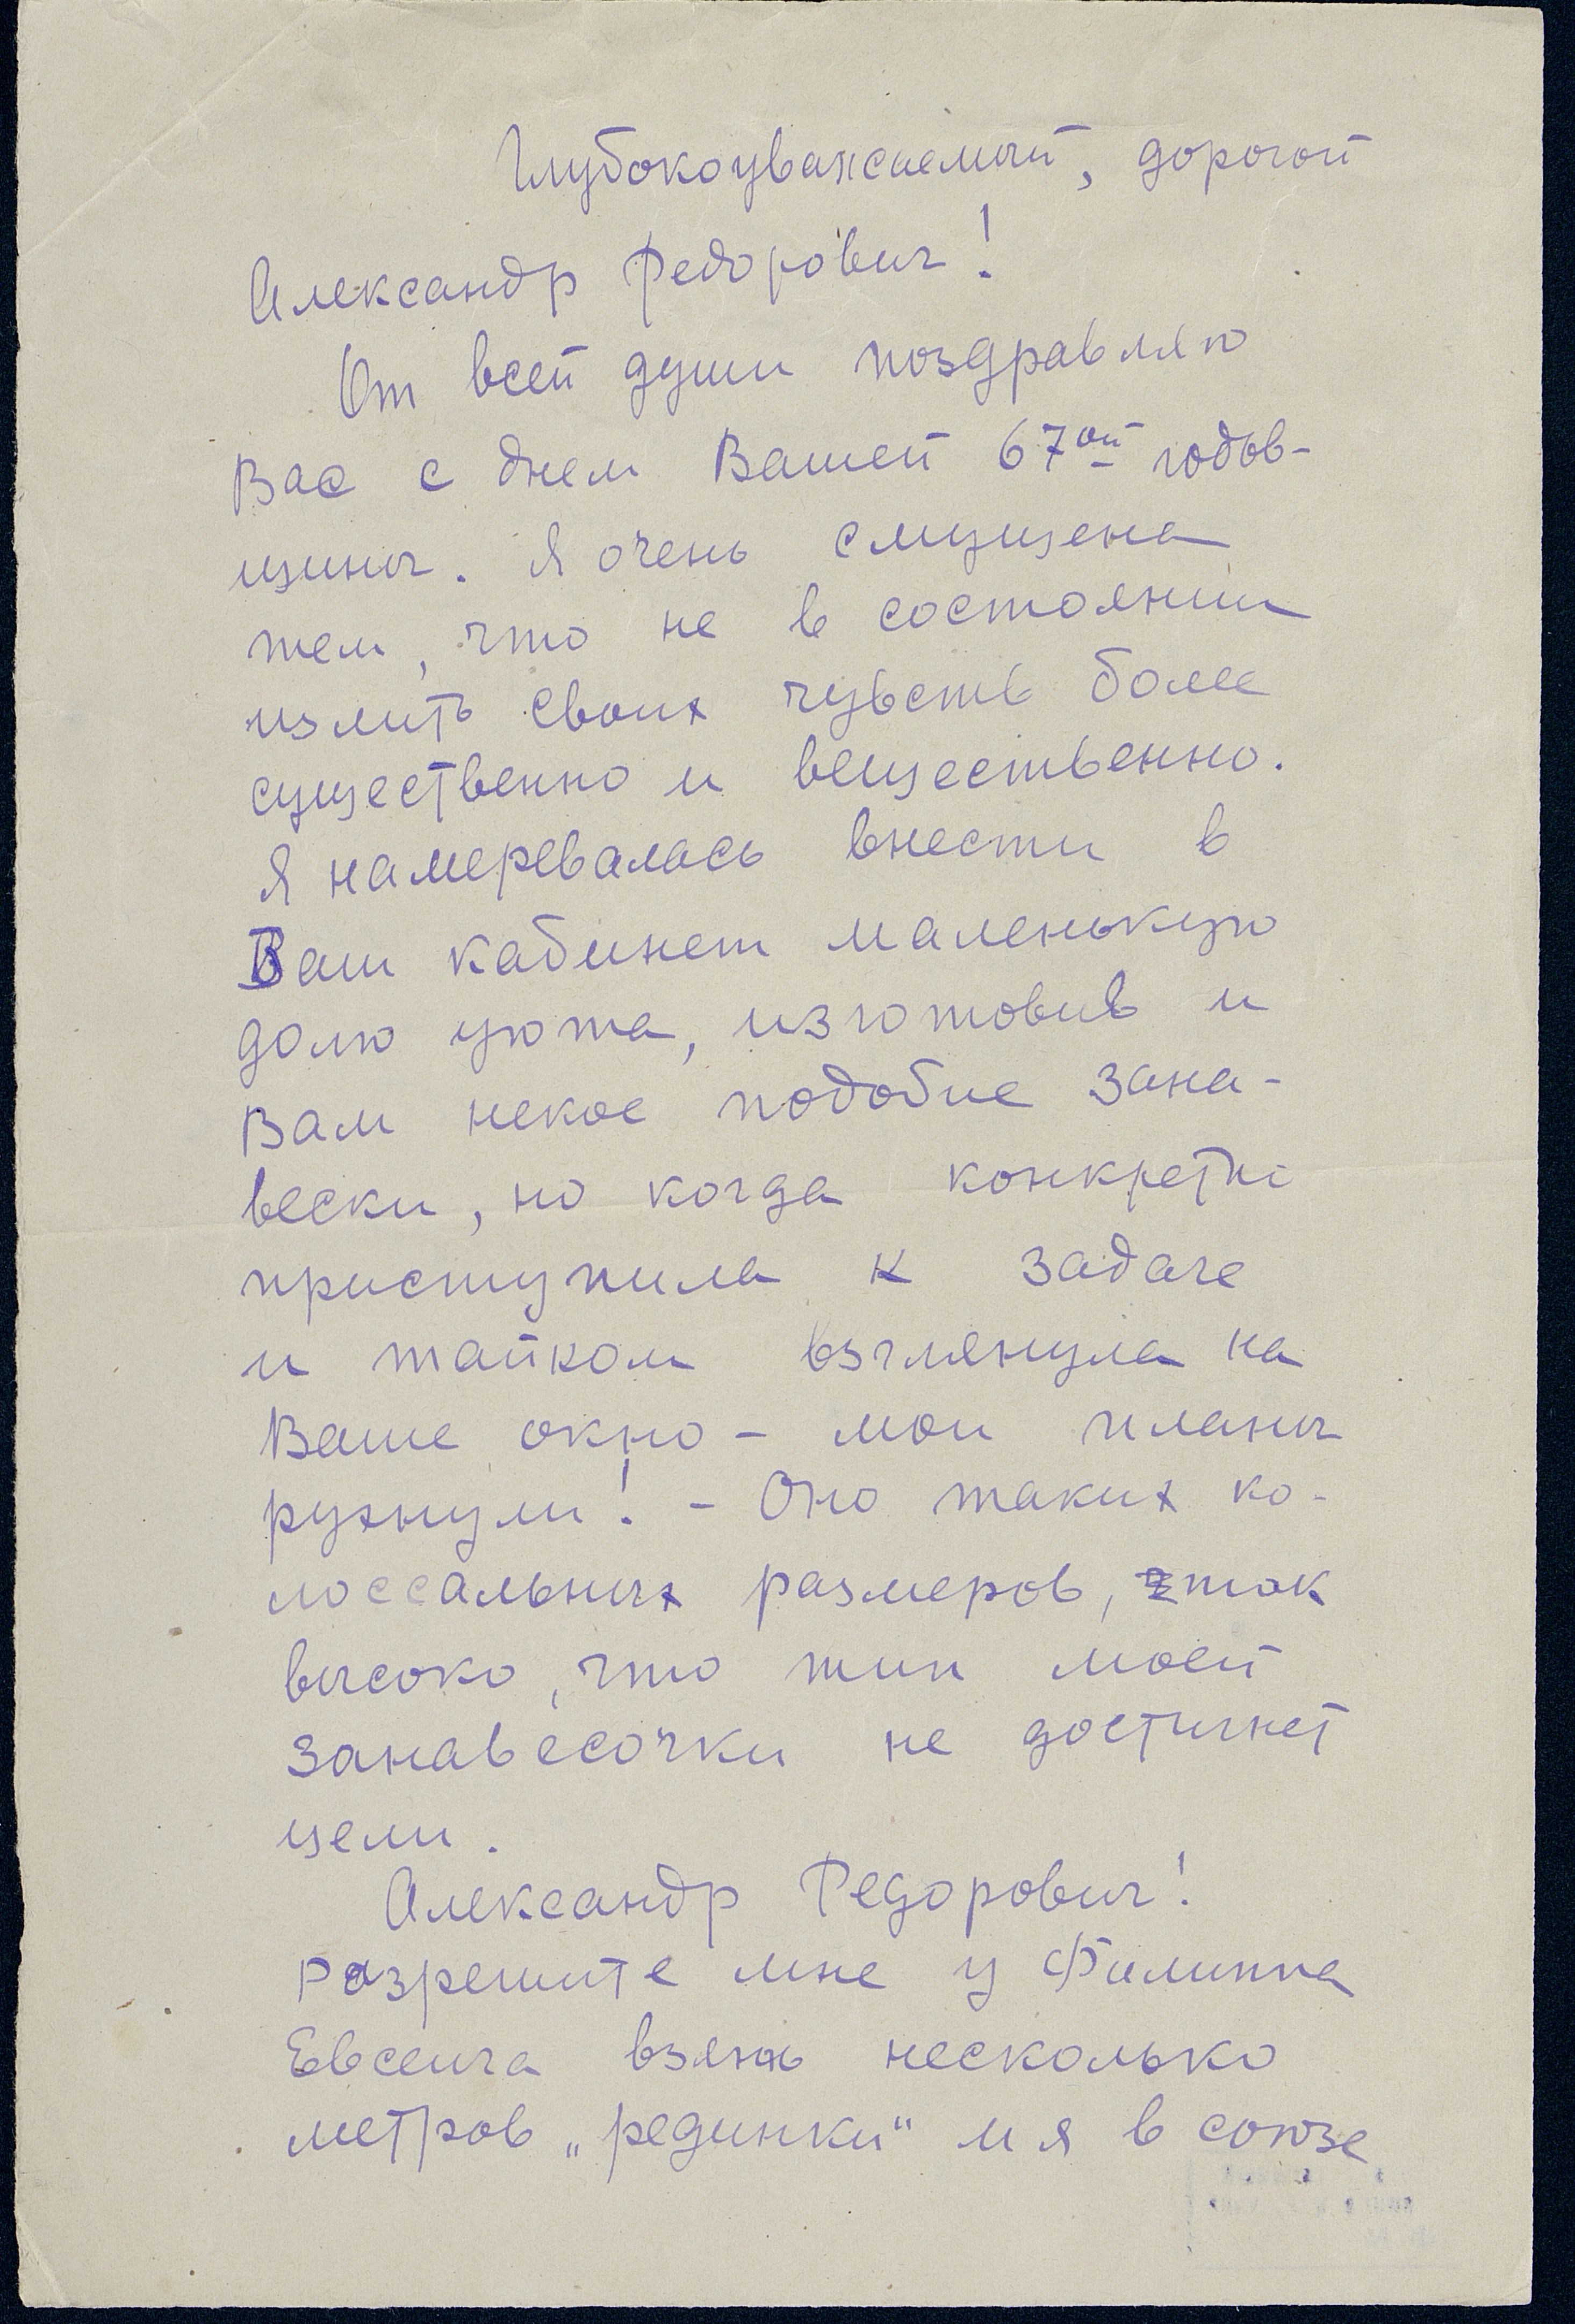 Глубокоуважаемый, дорогой
Александр Федорович!
От всей души поздравляю
Вас с днем Вашей 67ой годов-
щины. Я очень смущена
тем, что не в состоянии
излить своих чувств более
существенно и вещественно.
Я намеревалась внести в
Ваш кабинет маленькую
долю уюта, изготовив и
Вам некое подобие зана-
вески, но когда конкретно
приступила к задаче
и тайком взглянула на
Ваше окно - мои планы
рухнули! - Оно таких ко-
лоссальных размеров, так
высоко, что тип моей
занавесочки не достигнет
цели.
Александр Федорович!
Разрешите мне у Филиппа
Евсеича взять несколько
метров „рединки" и я в союзе